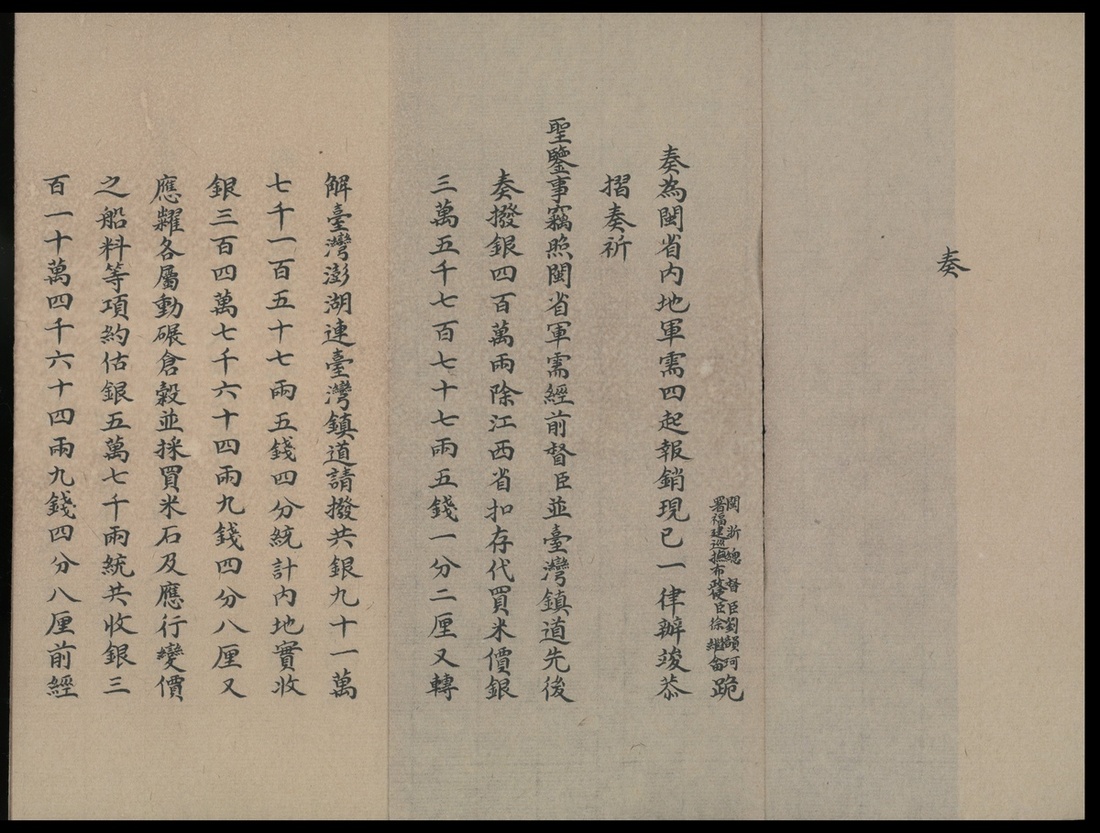 奏
閩浙總督臣劉韻珂
署福建巡撫布政使臣徐繼畬
跪
奏為閩省內地軍需四起報銷現已一律辦竣恭
摺奏祈
聖鑒事竊照閩省軍需經前督臣並臺灣鎮道先後
奏撥銀四百萬兩除江西省扣存代買米價銀
三萬五千七百七十七兩五錢一分二厘又轉
解臺灣澎湖連臺灣鎮道請撥共銀九十一萬
七千一百五十七兩五錢四分統計內地實收
銀三百四萬七千六十四兩九錢四分八厘又
應糶各屬動碾倉穀並採買米石及應行變價
之船料等項約估銀五萬七千兩統共收銀三
百一十萬四千六十四兩九錢四分八厘前經